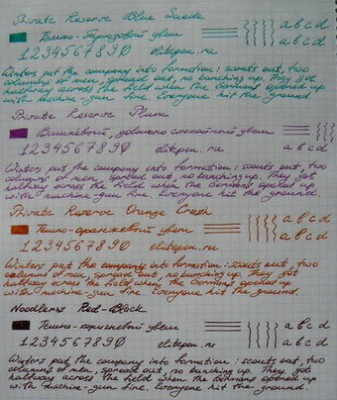 Private Reserve Blue Suede
Темно-бирюзовый цвет a b c d
1 2 3 4 5 6 7 8 9 0 elitepen.ru a b c d
Winters put the company into formation: scouts out, two
columns of men, spread out, no bunching up. They got
halfway across the field when the Germans opened up
with machine-gun fire. Everyone hit the ground.
Private Reserve Plum
Вишнёвый, довольно спокойный цвет
1 2 3 4 5 6 7 8 9 0 elitepen.ru a b c d
Winters put the company into formation: scouts out, two
columns of men, spread out, no bunching up. They got
halfway across the field when the Germans opened up
with machine gun fire. Everyone hit the ground.
Private Reserve Orange Crush
Темно-оранжевый цвет a b c d
1 2 3 4 5 6 7 8 9 0 elitepen.ru a b c d
Winters put the company into formation: scouts out, two
columns of men, spread out, no bunching up. They got
halfway across the field when the Germans opened up
with machine-gun fire. Everyone hit the ground.
Noodlers Red-Black
Темно-коричневый цвет a b c d
1 2 3 4 5 6 7 8 9 0 elitepen.ru a b c d
Winters put the company into formation: scouts out, two
columns of men, spread out, no bunching up. They got
halfway across the field when the Germans opened up
with machine-gun fire. Everyone hit the ground.